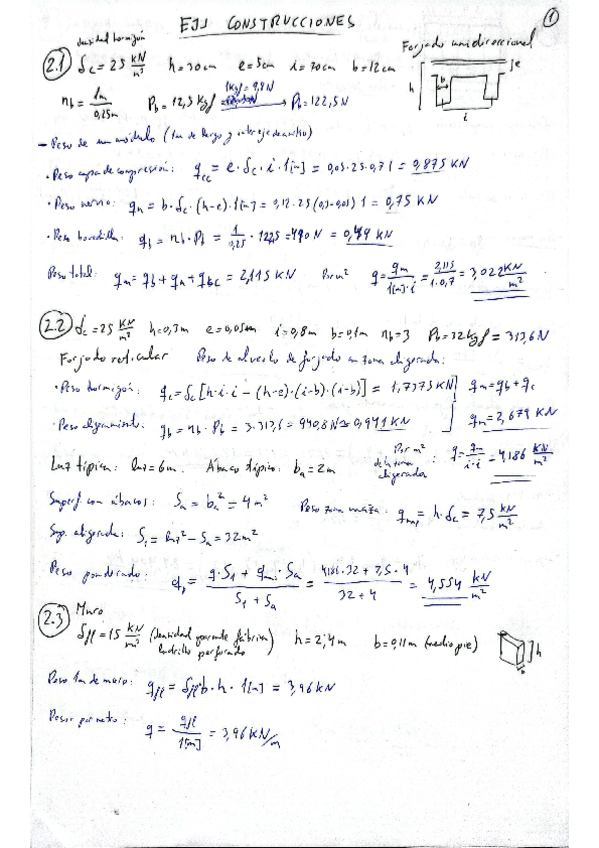 EJ1 CONSTRUCCIONES
1
densidad hormigón
Forjado unidireccional
2.1 δc = 25 kN/m³ h = 30cm e = 5cm i = 70cm b = 12cm
e
h
b
i
nb = 1m/0,25m Pb = 12,5 kgf 1kgf = 9,8N → Pb = 122,5N
- Peso de un módulo (1m de largo y entreje de ancho)
• Peso capa de compresión: qcc = e · δc · i · 1[m] = 0,05·25·0,7·1 = 0,875 KN
• Peso nervio: qn = b · δc · (h-e) · 1[m] = 0,12·25 (0,3-0,05) 1 = 0,75 KN
• Peso bovedilla: qb = nb · Pb = 1/0,25 · 122,5 = 490 N = 0,49 KN
Peso total: qm = qb + qn + qcc = 2,115 KN Por m² q = qm/1[m]·i = 2,115/1·0,7 = 3,022 KN/m²
2.2 δc = 25 KN/m³ h = 0,3m e = 0,05m i = 0,8m b = 0,1m nb = 3 Pb = 32 kgf = 313,6N
Forjado reticular Peso de alveolo de forjado en zona aligerada:
• Peso hormigón: qc = δc [h·i·i - (h-e)·(i-b)·(i-b)] = 1,7375 KN qm = qb + qc
• Peso aligeramient.: qb = nb · Pb = 3·313,6 = 940,8N ≈ 0,941 KN qm = 2,679 KN
Luz típica: Luz = 6m. Ábaco típico: ba = 2m
Por m² de la zona aligerada: q = qm/i·i = 4,186 KN/m²
Superf con ábacos: Sa = ba² = 4m² Peso zona maciza: qma = h · δc = 7,5 KN/m²
Sup. aligerada: S1 = Luz² - Sa = 32m²
Peso ponderado: qp = q·S1 + qma·Sa / S1 + Sa = 4,186·32 + 7,5·4 / 32+4 = 4,554 KN/m²
2.3 Muro
δfl = 15 KN/m³ (densidad parente fábrica ladrillo perforado) h = 2,4m b = 0,11m (medio pie)
h
b
Peso 1m de muro: qfl = δfl · b · h · 1[m] = 3,96 KN
Peso por metro: q = qfl/1[m] = 3,96 KN/m